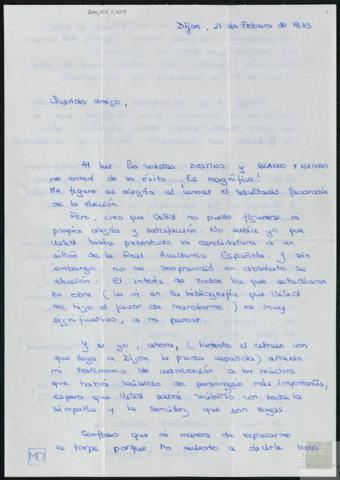 Dijon, 21 de Febrero de 1973
Querido amigo,
Al leer las revistas DESTINO y BLANCO Y NEGRO
me enteré de su éxito... ¡Es magnífico!
Me figuro su alegría al conocer el resultado favorable
de la elección.
Pero, creo que Usted no puede figurarse mi
propia alegría y satisfacción. No sabía yo que
Usted había presentado su candidatura a un
sillón de la Real Academia Española. Y sin
embargo no me sorprendió en absoluto su
elección. El interés de todos los que estudiaron
su obra (lo vi en la bibliografía que Usted
me hizo el favor de mandarme) es muy
significativo, a mi parecer.
Y si yo, ahora, (lamento el retraso con
que llega a Dijon la prensa española) añado
mi testimonio de admiración a los muchos
que habrá recibido de personajes más importantes,
espero que Usted sabrá recibirlo con toda la
simpatía y la sencillez que son suyas.
Confieso que mi manera de expresarme
es torpe porque no acierto a decirle todo
MD